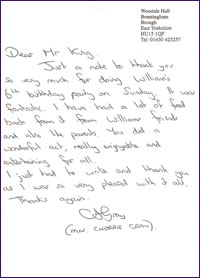 Woodale Hall
Brantingham
Brough
East Yorkshire
HU15 1QF
Tel: 01430 423257
Dear Mr King
Just a note to thank you
so very much for doing William's
6th birthday party on Sunday. It was
fantastic. I have had a lot of feed
back from it from William's friends
and also the parents. You did a
wonderful act, really enjoyable and
entertaining for all.
I just had to write and thank you
as I was so very pleased with it all.
Thanks again.
(MRS. CHERRIE GRAY)